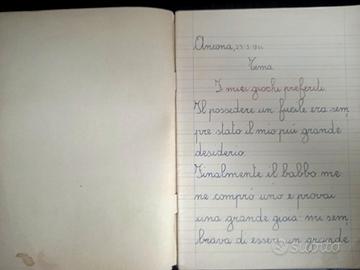 Ancona,
Tema
I miei giochi preferiti
Il possedere un fucile era sem
pre stato il mio più grande
desiderio.
Finalmente il babbo me
ne comprò uno e provai
una grande gioia: mi sem
brava di essere un grande
subito